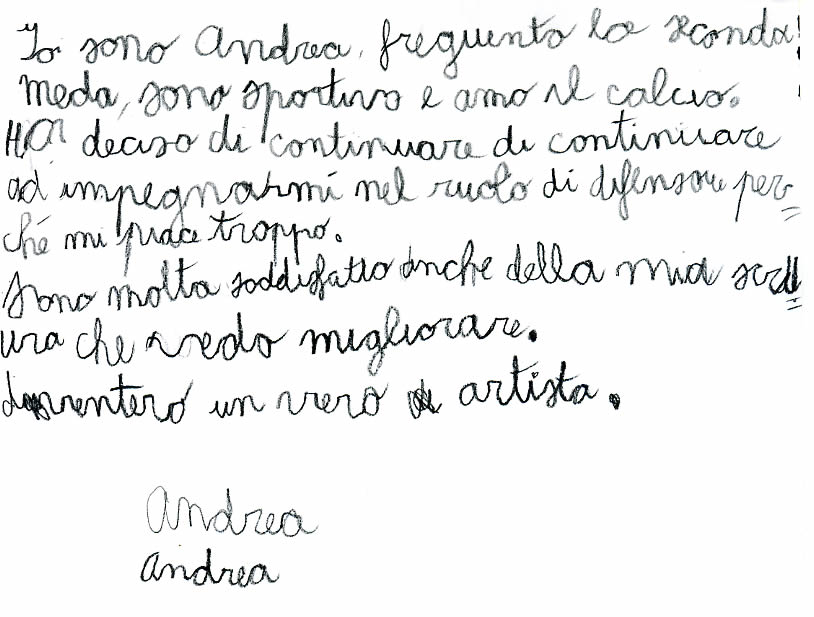 Io sono Andrea, frequento la seconda
Meda, sono sportivo e amo il calcio.
Ho deciso di continuare di continuare
ad impegnarmi nel ruolo di difensore per=
ché mi piace troppo.
Sono molto soddisfatto anche della mia scritt=
ura che vedo migliorare.
diventerò un vero artista.
Andrea
Andrea